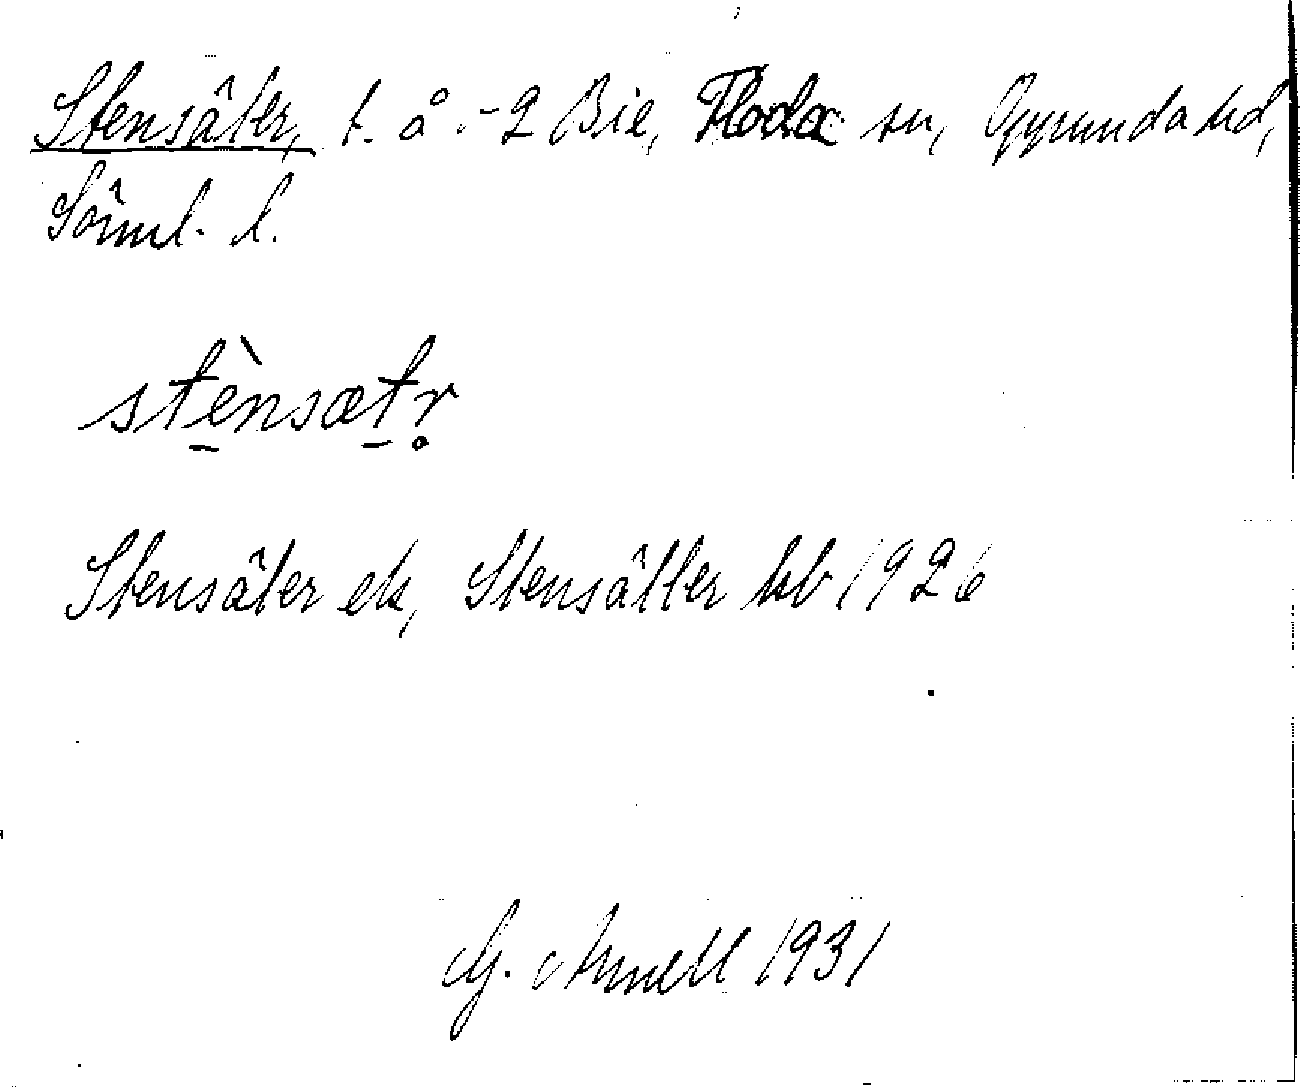 Stensäter, t. å -2 Bie, Floda sn, Oppunda hd,
Sörml. l.
stènsætr̥
Stensäter ek, Stensätter kb 1926
G. Arnell 1931